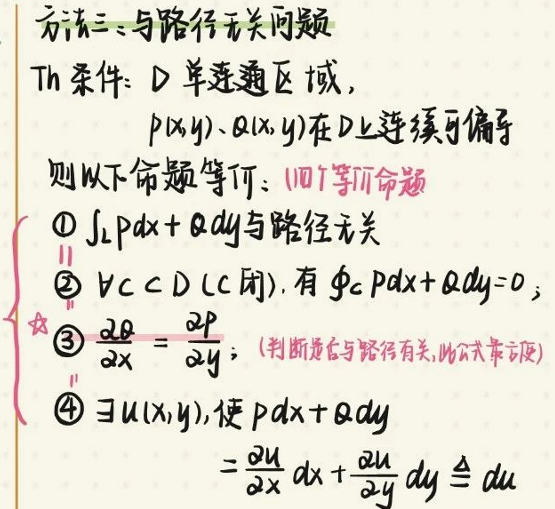 方法三:与路径无关问题
Th 条件: D 单连通区域,
P(x,y)、Q(x,y)在D上连续可偏导
则以下命题等价: (四个等价命题
① ∫L Pdx + Qdy 与路径无关
② ∀C⊂D (C闭), 有 ∮c Pdx + Qdy = 0;
☆ ③ ∂Q/∂x = ∂P/∂y; (判断是否与路径有关,此公式最方便)
④ ∃u(x,y), 使 Pdx + Qdy
= ∂u/∂x dx + ∂u/∂y dy ≜ du